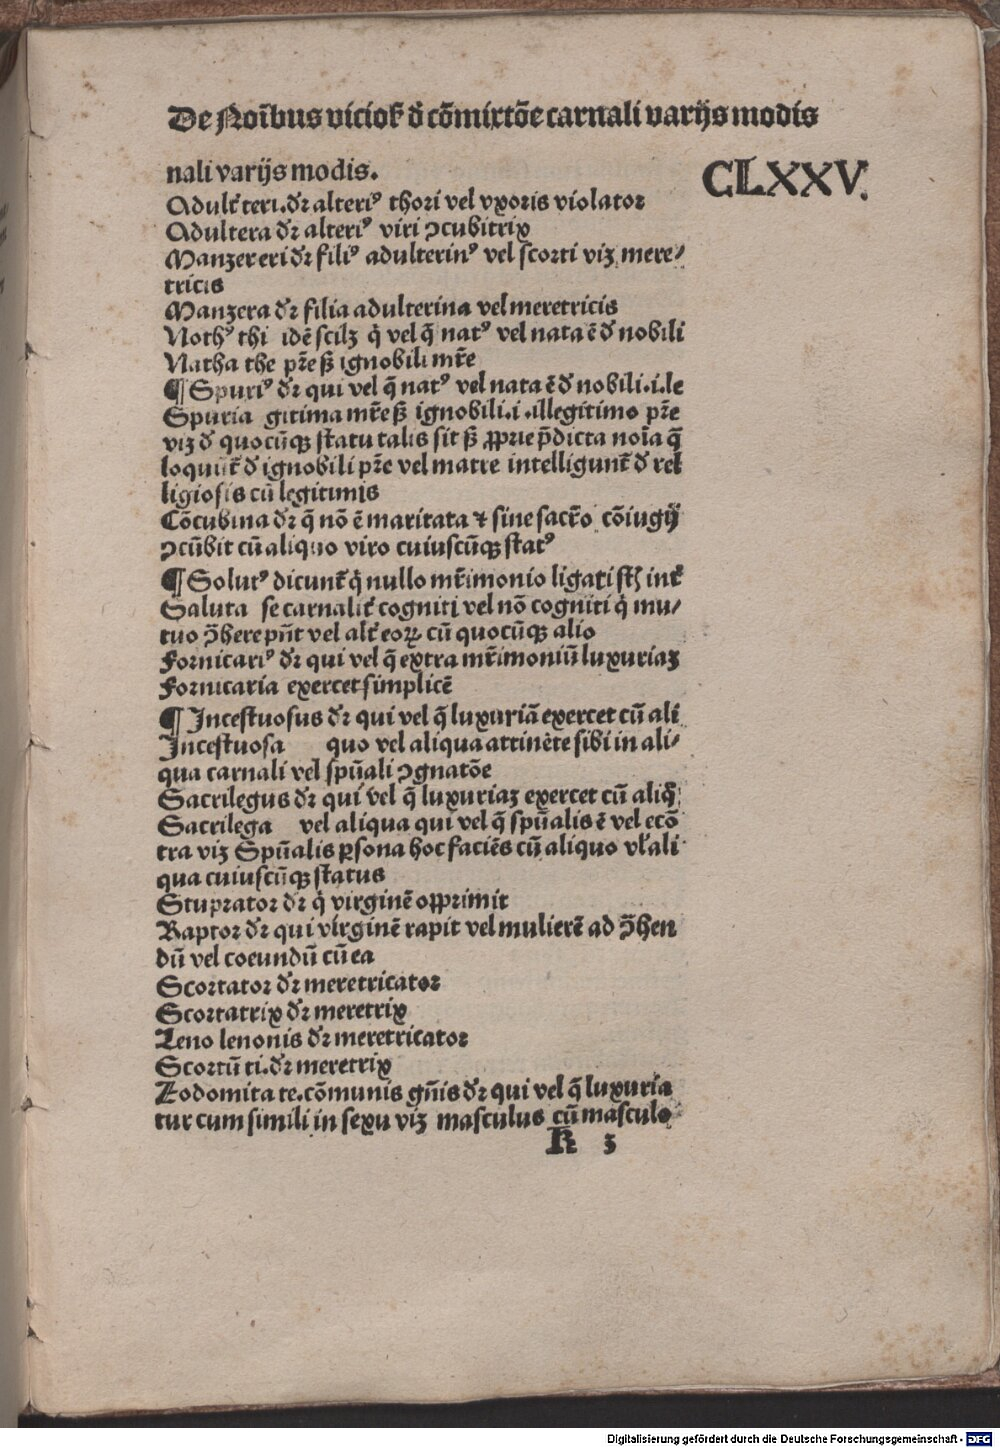 De Noıb̄us vicioꝝ d̄ cōmixtōe carnali varijs modis
CLXXV.
nali varijs modis.
Adult̄ teri.dr̄ alteriꝰ thori vel vxoris violator
Adultera dr̄ alteriꝰ viri ↄcubitrix
Manzer eri dr̄ filiꝰ adulterinꝰ vel scorti viꝫ mere⸗
tricis
Manzera dr̄ filia adulterina vel meretricis
Nothꝰ thi idē scilꝫ q̇ vel q̄ natꝰ vel nata ē d̄ nobili
Natha the pr̄e sꝫ ignobili mr̄e
¶ Spuriꝰ dr̄ qui vel q̄ natꝰ vel nata ē d̄ nobili.i.le
Spuria gitima mr̄e sꝫ ignobili.i.illegitimo pr̄e
viꝫ d̄ quocūqꝫ statu talis sit sꝫ ꝓprie p̄dicta noīa q̄
loquūt̄ d̄ ignobili pr̄e vel matre intelligunt̄ d̄ rel
ligiosis cū legitimis
Cōcubina dr̄ q̄ nō ē maritata ⁊ sine sacr̄o cōiugij
ↄcūbit cū aliquo viro cuiuscūqꝫ statꝰ
¶ Solutꝰ dicunt̄ q̇ nullo mr̄imonio ligati sꝫ int̄
Saluta se carnalit̄ cogniti vel nō cogniti q̇ mu⸗
tuo ↄ̄here pn̄t vel alt̄ eoꝝ cū quocūqꝫ alio
Fornicariꝰ dr̄ qui vel q̄ extra mr̄imoniū luxuriaꝫ
Fornicaria exercet simplicē
¶ Incestuosus dr̄ qui vel q̄ luxuriā exercet cū ali
Incestuosa quo vel aliqua attinēte sibi in ali⸗
qua carnali vel spūali ↄgnatōe
Sacrilegus dr̄ qui vel q̄ luxuriaꝫ exercet cū aliq̇
Sacrilega vel aliqua qui vel q̄ spūalis ē vel ecō
tra viꝫ Spūalis ꝑsona hoc faciēs cū aliquo vl̄ ali
qua cuiuscūqꝫ status
Stuprator dr̄ q̇ virginē opprimit
Raptor dr̄ qui virginē rapit vel mulierē ad ↄ̄hen
dū vel coeundū cū ea
Scortator dr̄ meretricator
Scortatrix dr̄ meretrix
Leno lenonis dr̄ meretricator
Scortū ti.dr̄ meretrix
Zodomita te.cōmunis gn̄is dr̄ qui vel q̄ luxuria
tur cum simili in sexu viꝫ masculus cū masculo
K 3
Digitalisierung gefördert durch die Deutsche Forschungsgemeinschaft - DFG